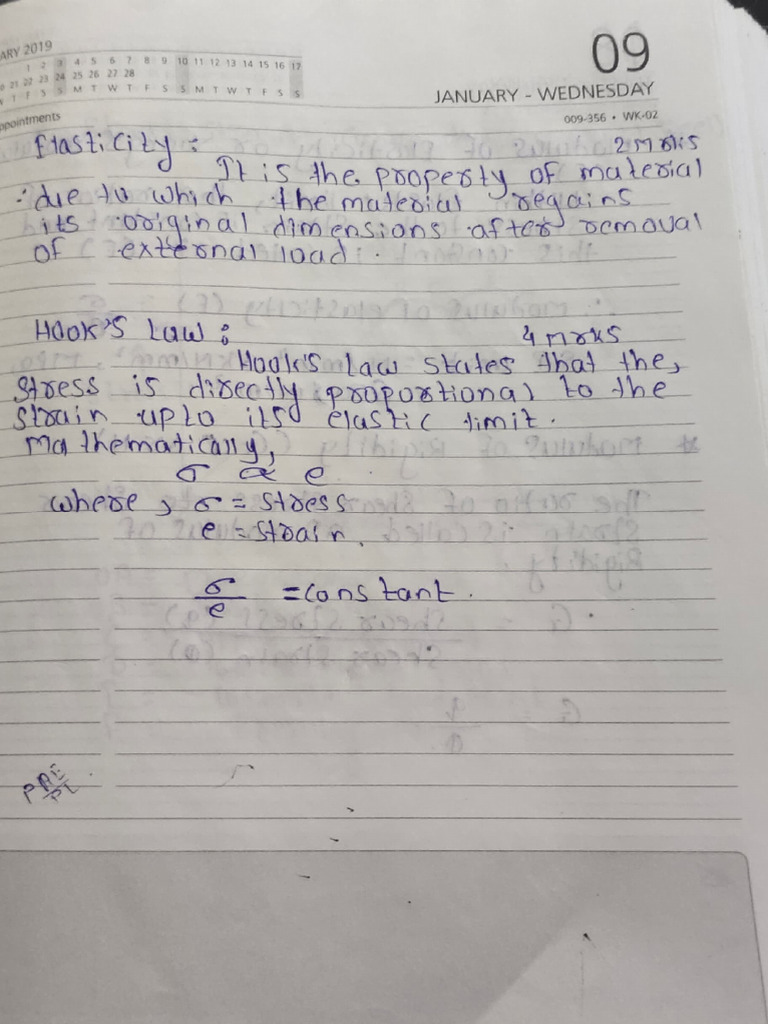 ARY 2019
1 2 3 4 5 6 7 8 9 10 11 12 13 14 15 16 17
20 21 22 23 24 25 26 27 28
W T F S S M T W T F S S M T W T F S S
09
JANUARY - WEDNESDAY
009-356 • WK-02
ppointments
Elasticity : 2 Mrks
It is the property of material
due to which the material regains
its original dimensions after removal
of external load.
Hook's Law : 4 Mrks
Hook's Law states that the,
stress is directly proportional to the
strain upto its elastic limit.
Mathematically,
σ ∝ e
where, σ = stress
e = strain.
σ/e = constant.